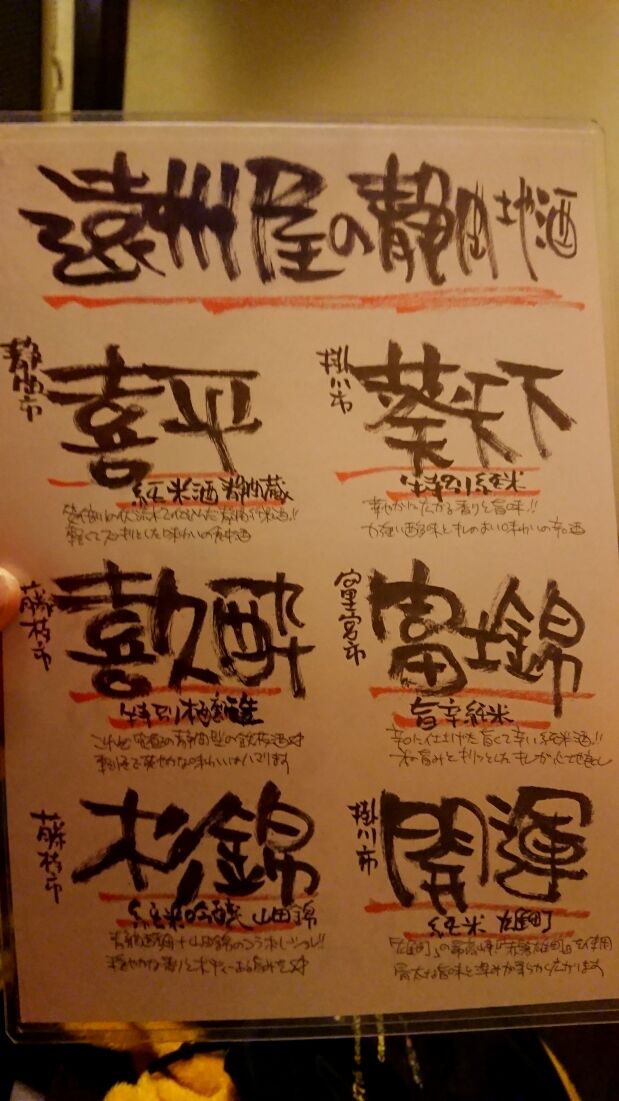 遠州屋の静岡地酒
静岡市
喜平
純米酒 若貯蔵
軽くてスッキリとした味わいの
掛川市
葵天下
特別純米
華やかに広がる香りと旨味!!
力強い酸味とキレのよい味わいの辛口酒
藤枝市
喜久酔
特別本醸造
これぞ 静岡型の
軽快で爽やかな味わいはハマります
富士宮市
富士錦
旨辛純米
辛口に仕上げた旨くて辛い純米酒!!
米の旨みとキリッとしたキレが心地良し
藤枝市
杉錦
純米吟醸 山田錦
静岡酵母+山田錦のコラボレーション!!
穏やかな香りとボディーある旨みを
掛川市
開運
純米 雄町
「雄町」の最高峰!!「赤磐雄町」を使用
骨太な旨味と深みが柔らかく広がります